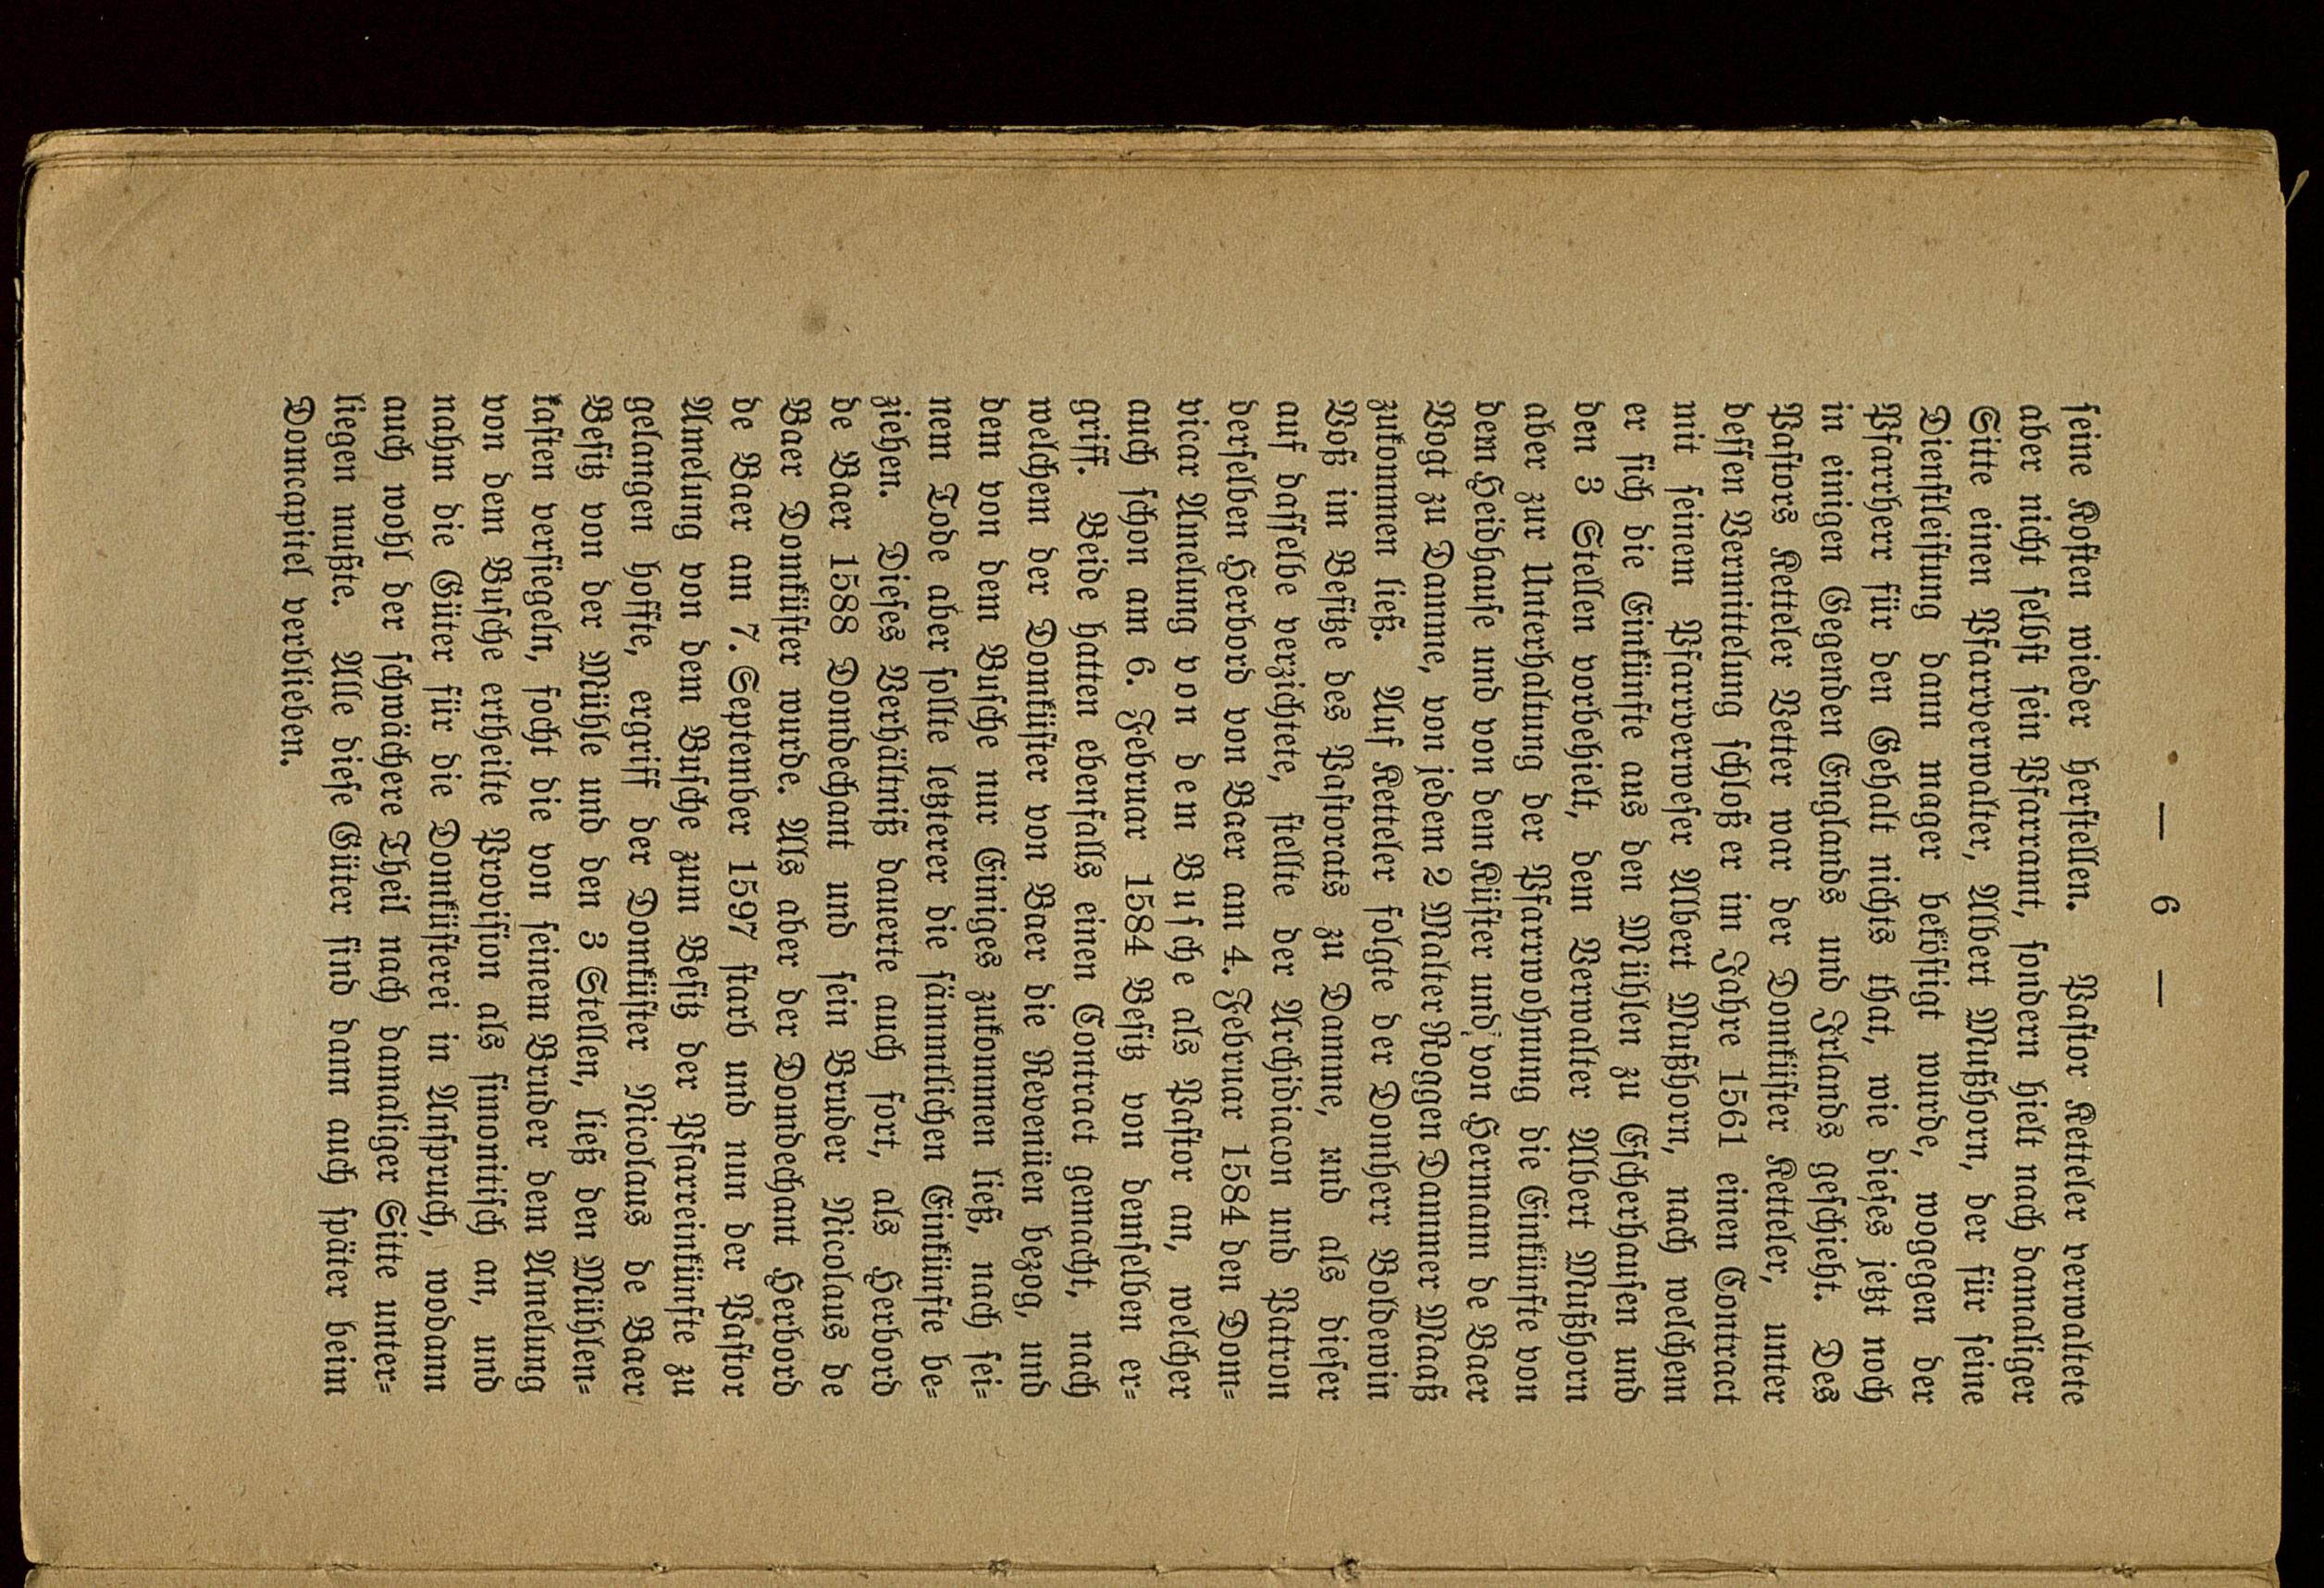 — 6 —
ſeine Koſten wieder herſtellen. Paſtor Ketteler verwaltete
aber nicht ſelbſt ſein Pfarramt, ſondern hielt nach damaliger
Sitte einen Pfarrverwalter, Albert Mußhorn, der für ſeine
Dienſtleiſtung dann mager beköſtigt wurde, wogegen der
Pfarrherr für den Gehalt nichts that, wie dieſes jetzt noch
in einigen Gegenden Englands und Irlands geſchieht. Des
Paſtors Ketteler Vetter war der Domküſter Ketteler, unter
deſſen Vermittelung ſchloß er im Jahre 1561 einen Contract
mit ſeinem Pfarrverweſer Albert Mußhorn, nach welchem
er ſich die Einkünfte aus den Mühlen zu Eſcherhauſen und
den 3 Stellen vorbehielt, dem Verwalter Albert Mußhorn
aber zur Unterhaltung der Pfarrwohnung die Einkünfte von
dem Heidhauſe und von dem Küſter und von Hermann de Baer
Vogt zu Damme, von jedem 2 Malter Roggen Dammer Maaß
zukommen ließ. Auf Ketteler folgte der Domherr Boldewin
Voß im Beſitze des Paſtorats zu Damme, und als dieſer
auf daſſelbe verzichtete, ſtellte der Archidiacon und Patron
derſelben Herbord von Baer am 4. Februar 1584 den Dom⸗
vicar Amelung von dem Buſche als Paſtor an, welcher
auch ſchon am 6. Februar 1584 Beſitz von demſelben er⸗
griff. Beide hatten ebenfalls einen Contract gemacht, nach
welchem der Domküſter von Baer die Revenüen bezog, und
dem von dem Buſche nur Einiges zukommen ließ, nach ſei⸗
nem Tode aber ſollte letzterer die ſämmtlichen Einkünfte be⸗
ziehen. Dieſes Verhältniß dauerte auch fort, als Herbord
de Baer 1588 Domdechant und ſein Bruder Nicolaus de
Baer Domküſter wurde. Als aber der Domdechant Herbord
de Baer am 7. September 1597 ſtarb und nun der Paſtor
Amelung von dem Buſche zum Beſitz der Pfarreinkünfte zu
gelangen hoffte, ergriff der Domküſter Nicolaus de Baer
Beſitz von der Mühle und den 3 Stellen, ließ den Mühlen⸗
kaſten verſiegeln, focht die von ſeinem Bruder dem Amelung
von dem Buſche ertheilte Proviſion als ſimonitiſch an, und
nahm die Güter für die Domküſterei in Anſpruch, wodann
auch wohl der ſchwächere Theil nach damaliger Sitte unter⸗
liegen mußte. Alle dieſe Güter ſind dann auch ſpäter beim
Domcapitel verblieben.